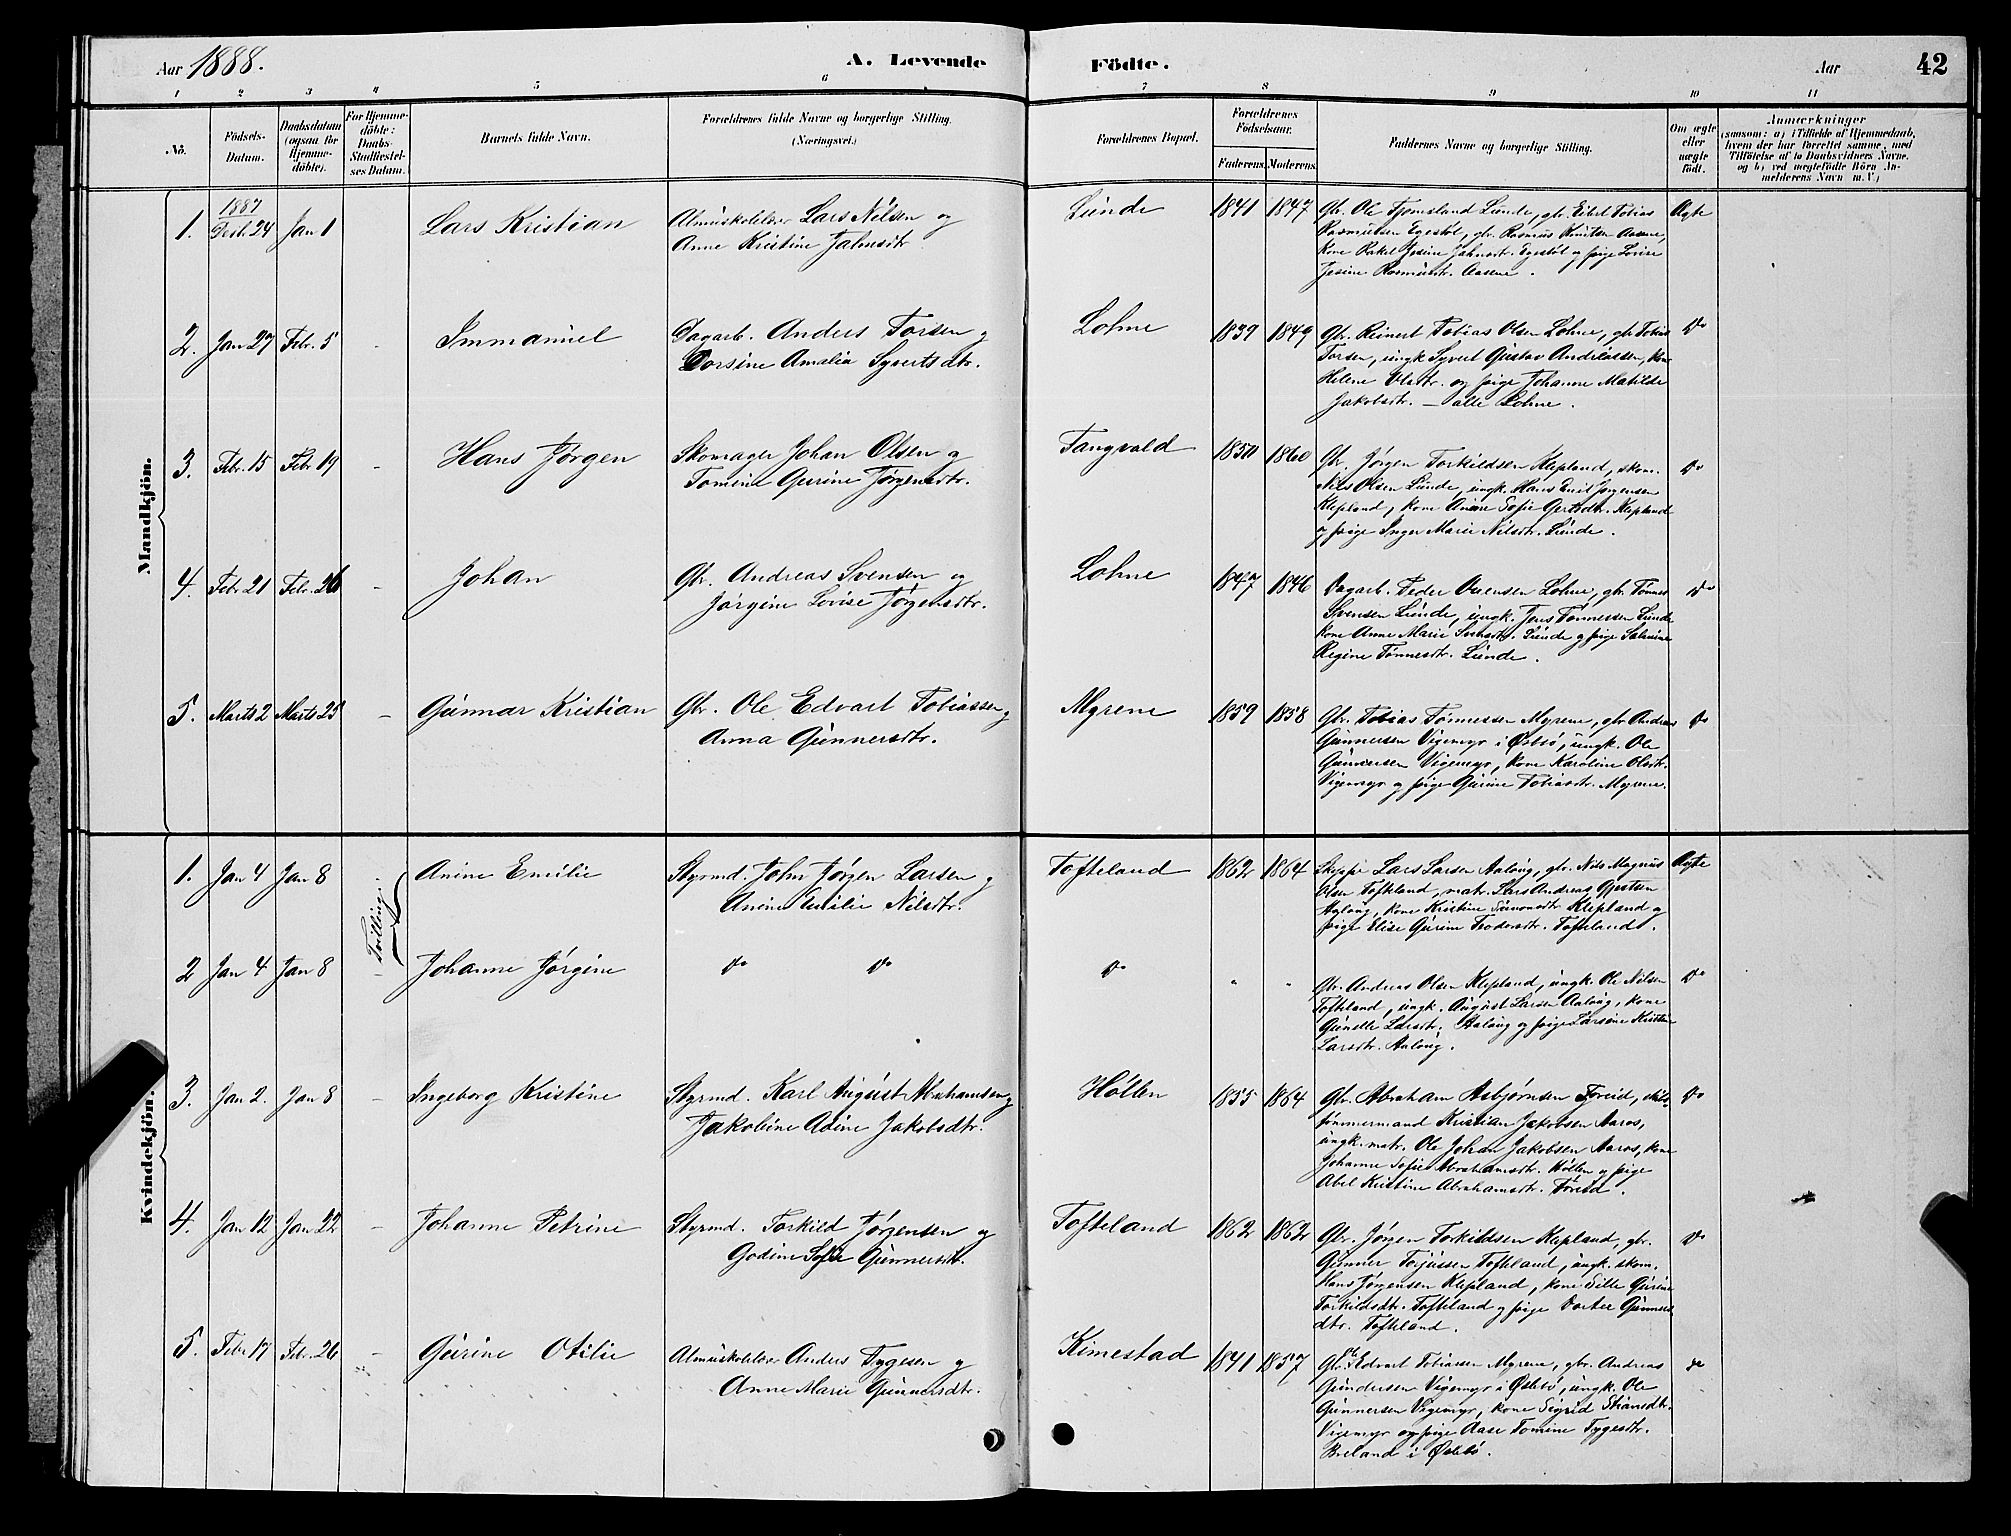 Aar 1888.
A. Levende
Födte.
Aar
42
1
2
3
4
5
6
7
8
9
10
11
No.
Födsels-
Datum.
Daabsdatum
(ogsaa for
Hjemme-
döbte).
For Hjemme-
döbte:
Daabs-
Stadfestel-
ses Datum.
Barnets fulde Navn.
Forældrenes fulde Navne og borgerlige Stilling.
(Næringsvei.)
Forældrenes Bopæl.
Forældrenes
Födselsaar.
Faderens.
Moderens.
Faddernes Navne og borgerlige Stilling.
Om ægte
eller
uægte
födt.
Anmærkninger
(saasom: a) i Tilfælde af Hjemmedaab,
hvem der har forrettet samme, med
Tilföielse af to Daabsvidners Navne.
og b) ved uægtefödte Börn An-
melderens Navn m.V.)
Mandkjön.
1.
1887
Desb. 24
Jan 1
Lars Kristian
Almuskolelærer Lars Nilsen og
Anne Kristine Jahnsdtr.
Lunde
1841
1847
Gbr. Ole Fjomsland Lunde, gbr. Eilert Tobias
Rasmussen Egestøl, gbr. Rasmus Knutsen Aasene,
kone Rakel Jesine Jahnsdtr. Egestøl og pige Lovise
Jesine Rasmusdtr. Aasene.
Ægte
2.
Jan 27
Febr. 5
-
Immanuel
Dagarb. Anders Torsen og
Dorsine Amalia Syvertsdtr.
Lohne
1839
1849
Gbr. Reinert Tobias Olsen Lohne, gbr. Tobias
Torsen, ungk. Syvert Gustav Andreassen, kone
Helene Olsdtr. og pige Johanne Matilde
Jakobsdtr. – alle Lohne.
Do
3.
Febr. 15
Febr 19
-
Hans Jørgen
Skomager Johan Olsen og
Tomine Gurine Jørgensdtr.
Tangvald
1850
1860
Gbr. Jørgen Torkildsen Klepland, skom.
Nils Olsen Lunde, ungk. Hans Emil Jørgensen
Klepland, kone Anne Sofie Gertsdtr. Klepland
og pige Inger Marie Nilsdtr. Lunde.
Do
4.
Febr 21
Febr. 26
-
Johan
Gbr. Andreas Svensen og
Jørgine Lovise Jørgensdtr.
Lohne
1847
1846
Dagarb. Peder Ovensen Lohne, gbr. Tønnes
Svensen Lunde, ungk. Jens Tønnessen Lunde
kone Anne Marie Lunde og pige Salmine
Regine Tønnesdtr. Lunde.
Do
5.
Marts 2
Marts 25
-
Gunnar Kristian
Gbr. Ole Edvart Tobiassen og
Anna Gunnersdtr.
Myrene
1859
1858
Gbr. Tobias Tønnessen Myrene, gbr Andreas
Gunnersen Vigemyr i Øslebø, ungk. Ole
Gunnersen Vigemyr, kone Karoline Olsdtr.
Vigemyr og pige Gurine Tobiasdtr. Myrene.
Do
Kvindekjön.
1.
Jan 4
Jan 8
Tvilling
Anine Emilie
Styrmd. John Jørgen Larsen og
Anine Emilie Nilsdtr.
Tofteland
1862
1864
Skipper Lars Larsen Aaløug, gbr. Nils Magnus
Olsen Tofteland, matr. Lars Andreas
kone Kristine Simonsdtr Klepland og
pige Elise Gurine Teodorsdtr. Tofteland.
Ægte
2
Jan 4
Jan 8
Johanne Jørgine
Do Do
Do
"
"
Gbr. Andreas Olsen Klepland, ungk. Ole Nilsen
Tofteland, ungk. August Larsen Aaløug, kone
Gunelle Larsdtr. Aaløug og pige Larsine Kristine
Larsdtr. Aaløug.
Do
3.
Jan 2.
Jan 8
-
Ingeborg Kristine
Styrmd. Karl August Abrahamsen og
Jakobine Adine Jakobsdtr.
Høllen
1855
1864
Gbr. Abraham Asbjørnsen Try
tømmermand Kristian Jakobsen Aaros,
ungk. matr. Ole Johan Jakobsen Aaros, kone
Johanne Sofie Abrahamsdtr. Høllen og pige
Abel Kristine Abrahamsdtr.
Do
4.
Jan 12
Jan 22
-
Johanne Petrine
Styrmd. Torkild Jørgensen og
Godine Sofie Gunnersdtr.
Tofteland
1862
1862
Gbr. Jørgen Torkildsen Klepland, gbr.
Gunner Torjussen Tofteland, ungk. skom.
Hans Jørgensen Klepland, kone Sille Gurine
Torkildsdtr. Tofteland og pige Dortea Gunners-
dtr. Tofteland.
Do
5.
Febr 17
Febr. 26
-
Gurine Otilie
Almuskolelærer Anders Tygesen og
Anne Marie Gunnersdtr.
Kimestad
1841
1857
Gbr. Ole Edvart Tobiassen Myrene, gbr. Andreas
Gundersen Vigemyr i Øslebø, ungk. Ole
Gunnersen Vigemyr, kone Sigrid
Vigemyr og pige Aase Tomine Tygesdtr.
Breland i Øslebø.
Do